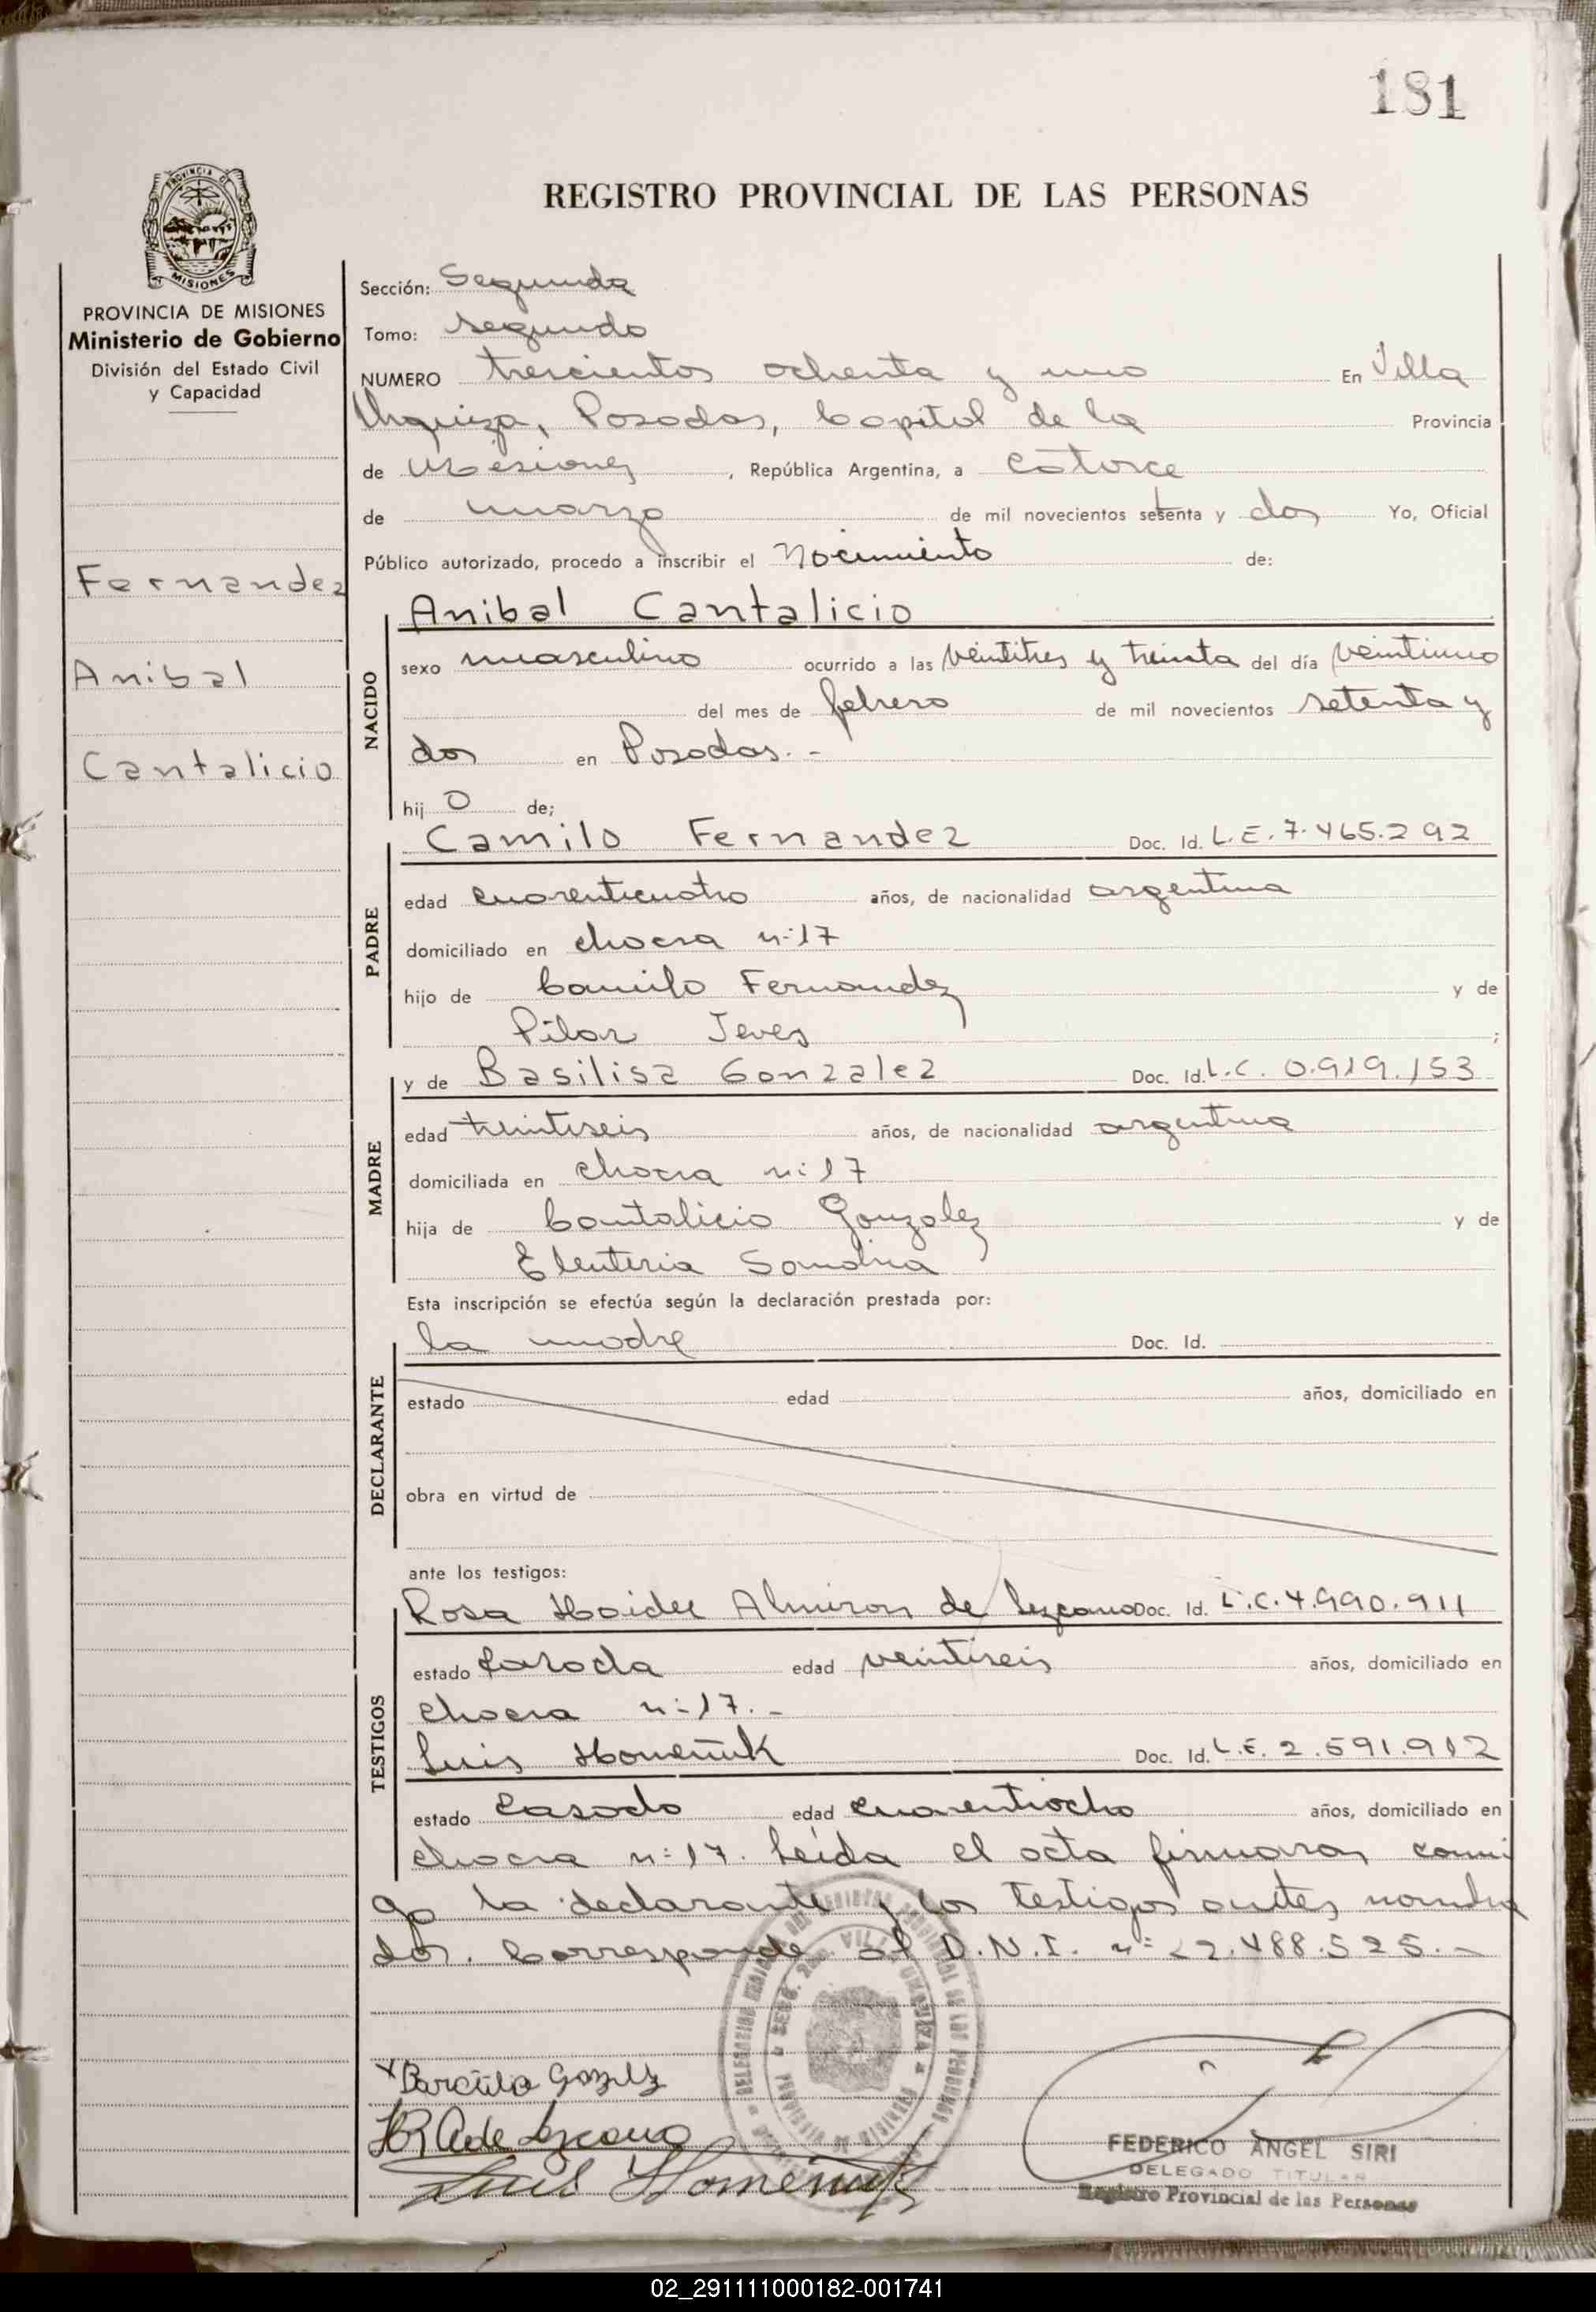 181
REGISTRO PROVINCIAL DE LAS PERSONAS
PROVINCIA DE MISIONES
Ministerio de Gobierno
División del Estado Civil
y Capacidad
Fernandez
Anibal
Cantalicio
Sección: Segunda
Tomo: segundo
NUMERO trescientos ochenta y uno En Villa
Urquiza, Posadas, Capital de la Provincia
de Misiones, República Argentina, a catorce
de marzo de mil novecientos setenta y dos Yo, Oficial
Público autorizado, procedo a inscribir el Nacimiento de:
NACIDO
Anibal Cantalicio
sexo masculino ocurrido a las veintitres y treinta del día veintiuno
del mes de febrero de mil novecientos setenta y
dos en Posadas.-
hij o de;
PADRE
Camilo Fernandez Doc. Id. L.E. 7.465.292
edad cuarenticuatro años, de nacionalidad argentina
domiciliado en chacra n:17
hijo de Camilo Fernandez y de
Pilar Jeves ;
MADRE
y de Basilisa Gonzalez Doc. Id. L.C. 0.919.153
edad treintiseis años, de nacionalidad argentina
domiciliada en chacra n:17
hija de Cantalicio Gonzalez y de
Eleuteria Sanabria
Esta inscripción se efectúa según la declaración prestada por:
DECLARANTE
la madre Doc. Id.
estado edad años, domiciliado en
obra en virtud de
ante los testigos:
TESTIGOS
Rosa Haidee Almiron de Lezcano Doc. Id. L.C. 4.990.911
estado Casada edad veintiseis años, domiciliado en
chacra n:17.-
Luis Homeñuk Doc. Id. L.E. 2.591.912
estado Casado edad cuarentiocho años, domiciliado en
chacra n:17. Leída el acta firmaron conmi
go la declarante y los testigos antes nombra
dos. Corresponde al D.N.I. n: 22.488.525.-
HRA de Lezcano
Luis Homeñuk
FEDERICO ANGEL SIRI
DELEGADO TITULAR
Registro Provincial de las Personas
02_291111000182-001741